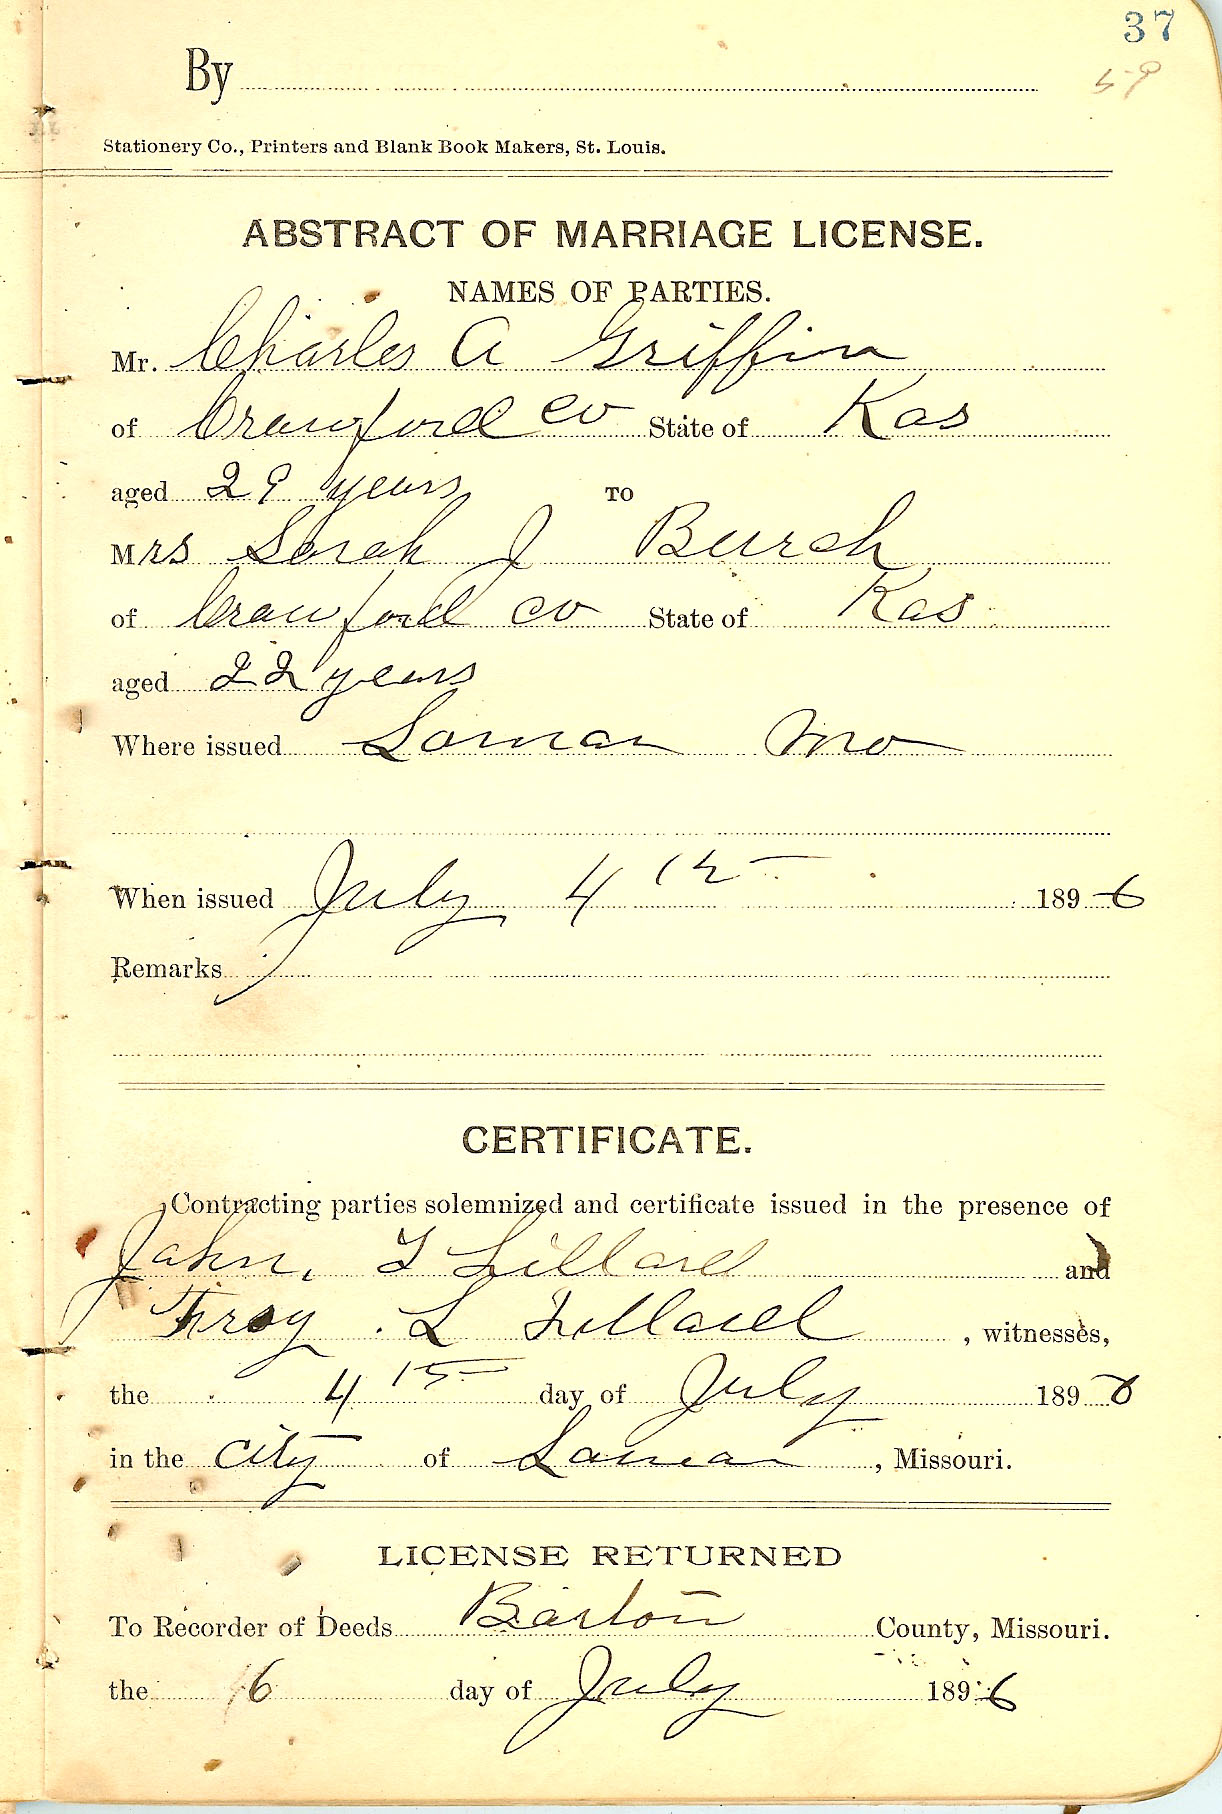 37
59
By
Stationery Co., Printers and Blank Book Makers, St. Louis.
ABSTRACT OF MARRIAGE LICENSE.
NAMES OF PARTIES.
Mr. Charles A Griffin
of Crawford co State of Kas
aged 29 years TO
Mrs Sarah J Burch
of Crawford co State of Kas
aged 22 years
Where issued Lamar Mo
When issued July 4th 1896
Remarks
CERTIFICATE.
Contracting parties solemnized and certificate issued in the presence of
John. T Lillard and
Troy. L Lillard, witnesses,
the 4th day of July 1896
in the city of Lamar, Missouri.
LICENSE RETURNED
To Recorder of Deeds Barton County, Missouri.
the 16 day of July 1896